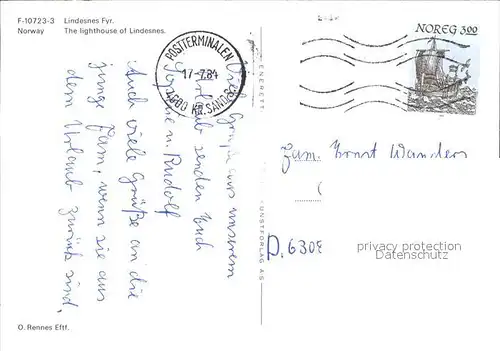 F-10723-3 Lindesnes Fyr.
Norway The lighthouse of Lindesnes.
POSTTERMINALEN
17-7.84
4600 KR.SAND S
NOREG 3,00
Viele Grüße aus unserem
Urlaub senden Euch
u. Rudolf
Auch viele Grüße an die
junge Fam, wenn sie aus
dem Urlaub zurück sind.
Fam. Ernst Wanders
D. 6308
privacy protection
Datenschutz
KUNSTFORLAG A.S
O. Rennes Eftf.